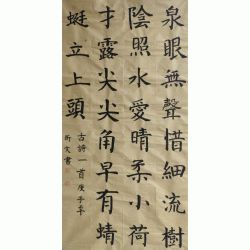 泉眼無聲惜細流樹
陰照水愛晴柔小荷
才露尖尖角早有蜻
蜓立上頭
古詩一首庚子年
昕文書